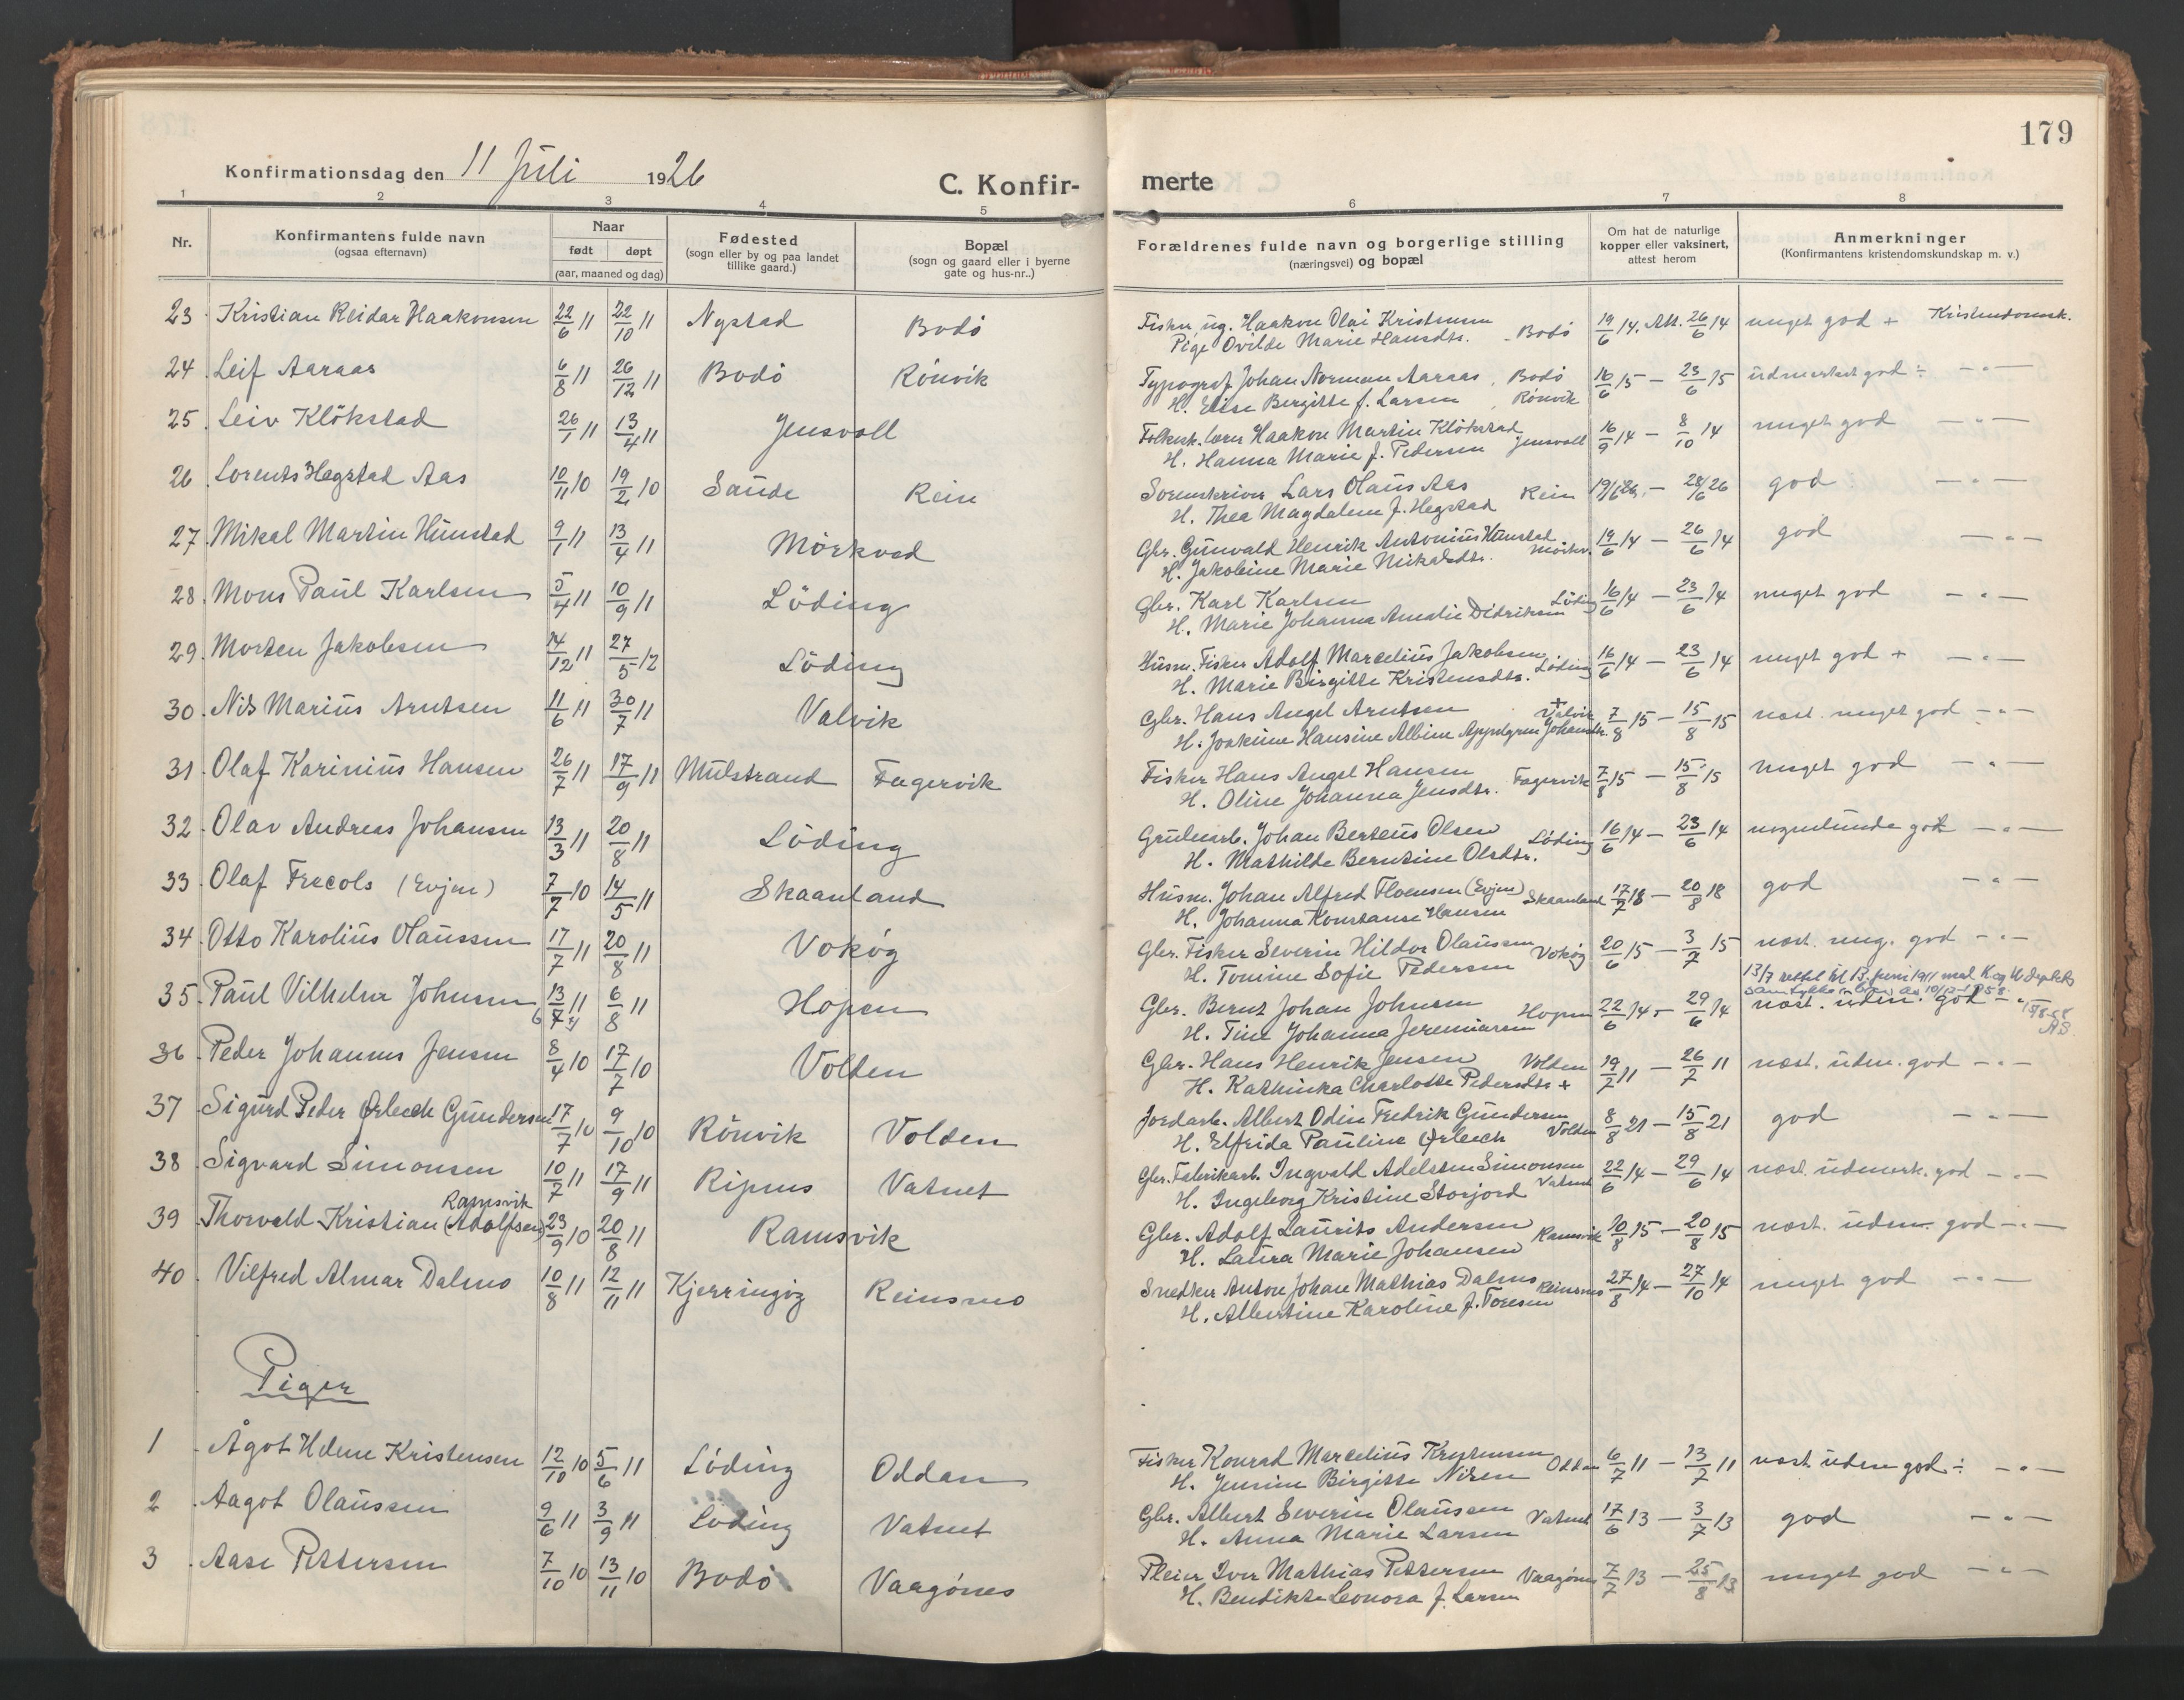 179
Konfirmationsdag den 11 Juli 1926
C. Konfir- merte
1 2 3 4 5 6 7 8
Nr.
Konfirmantens fulde navn
(ogsaa efternavn)
Naar
født døpt
(aar, maaned og dag)
Fødested
(sogn eller by og paa landet
tillike gaard.)
Bopæl
(sogn og gaard eller i byerne
gate og hus-nr..)
Forældrenes fulde navn og borgerlige stilling
(næringsvei) og bopæl
Om hat de naturlige
kopper eller vaksinert,
attest herom
Anmerkninger
(Konfirmantens kristendomskundskap m. v.)
23 Kristian Reidar Haakonsen 22/6 11 22/10 11 Nystad Bodö Fisker ug. Haakon Olai Kristensen Bodö 19/6 14. Att. 26/6 14 meget god + Kristendomsk.
Pige Ovilde Marie Hansdtr.
24 Leif Aaraas 6/8 11 26/12 11 Bodö Rönvik Typograf Johan Norman Aaraas, Bodö 16/6 15 — 23/6 15 udmerket god ÷ — " —
H. Elise Bergitte f. Larsen, Rönvik
25 Leiv Klökstad 26/1 11 13/4 11 Jensvoll Folkesk. lærer Haakon Martin Klökstad Jensvoll 16/9 14 — 8/10 14 meget god — " —
H. Hanna Marie f. Pedersen
26 Lorents Hegstad Aas 10/11 10 19/2 10 Sande Rein Sorenskriver Lars Olaus Aas Rein 19/6 26. — 28/6 26 god — " —
H. Thea Magdalene f. Hegstad
27 Mikal Martin Hunstad 9/1 11 13/4 11 Mörkved Gbr. Gunvald Henrik Antonius Hunstad Mörkv. 19/6 14 — 26/6 14 god — " —
H. Jakobine Marie Mikalsdtr.
28 Mons Paul Karlsen 5/4 11 10/9 11 Löding Gbr. Karl Karlsen Löding 16/6 14 — 23/6 14 meget god — " —
H. Marie Johanna Amalie Didriksen
29 Morten Jakobsen 14/12 11 27/5 12 Löding Husm. Fisker Adolf Marcelius Jakobsen Löding 16/6 14 — 23/6 14 meget god + — " —
H. Marie Birgitte Kristensdtr.
30 Nils Marius Arntsen 11/6 11 30/7 11 Valvik Gbr. Hans Angel Arntsen + Valvik 7/8 15 — 15/8 15 næst. meget god — " —
H. Joakime Hansine Albine Johansdtr.
31 Olaf Karinius Hansen 26/7 11 17/9 11 Mulstrand Fagervik Fisker Hans Angel Hansen Fagervik 7/8 15 — 15/8 15 meget god — " —
H. Oline Johanna Jensdtr.
32 Olav Andreas Johansen 13/3 11 20/8 11 Löding Grubearb. Johan Berteus Olsen Löding 16/6 14 — 23/6 14 nogenlunde god — " —
H. Mathilde Berntine Olsdtr.
33 Olaf Frecols (Evjen) 7/7 10 14/5 11 Skaanland Husm. Johan Alfred Floensen (Evjen) Skaanland 17/7 18 — 20/8 18 god — " —
H. Johanna Konstanse Hansen
34 Otto Karolius Olaussen 17/7 11 20/8 11 Vokög Gbr. Fisker Severin Hildor Olaussen Vokög 20/6 15 — 3/7 15 næst. meg. god — " —
H. Tomine Sofie Pedersen
13/7 rettet til 13. juni 1911 med K. og U. deptets
samtykke i brev av 10/12-1958.
35 Paul Vilhelm Johnsen 13/7 11 6/8 11 Hopen Gbr. Bernt Johan Johnsen Hopen 22/6 14 — 29/6 14 næst. udm. god — " —
H. Tine Johanna Jeremiassen
36 Peder Johannes Jensen 8/4 10 17/7 10 Volden Gbr. Hans Henrik Jensen Volden 19/7 11 — 26/7 11 næst. udm. god — " —
H. Kathinka Charlotte Pedersdtr. +
37 Sigurd Peder Ørbech Gundersen 17/7 10 9/10 10 Rönvik Volden Jordarb. Albert Odin Fredrik Gundersen Volden 8/8 21 — 15/8 21 god — " —
H. Elfrida Pauline Ørbech
38 Sigvard Simonsen 10/7 11 17/9 11 Ripnes Vatnet Gbr. Fabrikarb. Ingvald Adelsten Simonsen Vatnet 22/6 14 — 29/6 14 næst. udmerk. god — " —
H. Ingeborg Kristine Storjord
Ramsvik
39 Thorvald Kristian (Adolfsen) 23/9 10 20/8 11 Ramsvik Gbr. Adolf Laurits Andersen Ramsvik 10/8 15 — 20/8 15 næst. udm. god — " —
H. Laura Marie Johansen
40 Vilfred Almar Dalmo 10/8 11 12/11 11 Kjerringög Reinsmo Snedker Anton Johan Mathias Dalmo Reinsmo 27/8 14 — 27/10 14 meget god — " —
H. Albertine Karoline f. Toresen
Piger
1 Ågot Helene Kristensen 12/10 10 5/6 11 Löding Oddan Fisker Konrad Marcelius Kristensen Oddan 6/7 11 — 13/7 11 næst udm god ÷ — " —
H. Jensine Birgitte Nilsen
2 Aagot Olaussen 9/6 11 3/9 11 Löding Vatnet Gbr. Albert Severin Olaussen Vatnet 17/6 13 — 3/7 13 god — " —
H. Anna Marie Larsen
3 Aase Pettersen 7/10 10 13/11 10 Bodö Vaagönes Pleier Iver Mathias Pettersen Vaagönes 7/7 13 — 25/8 13 meget god — " —
H. Bendikte Leonora f. Larsen